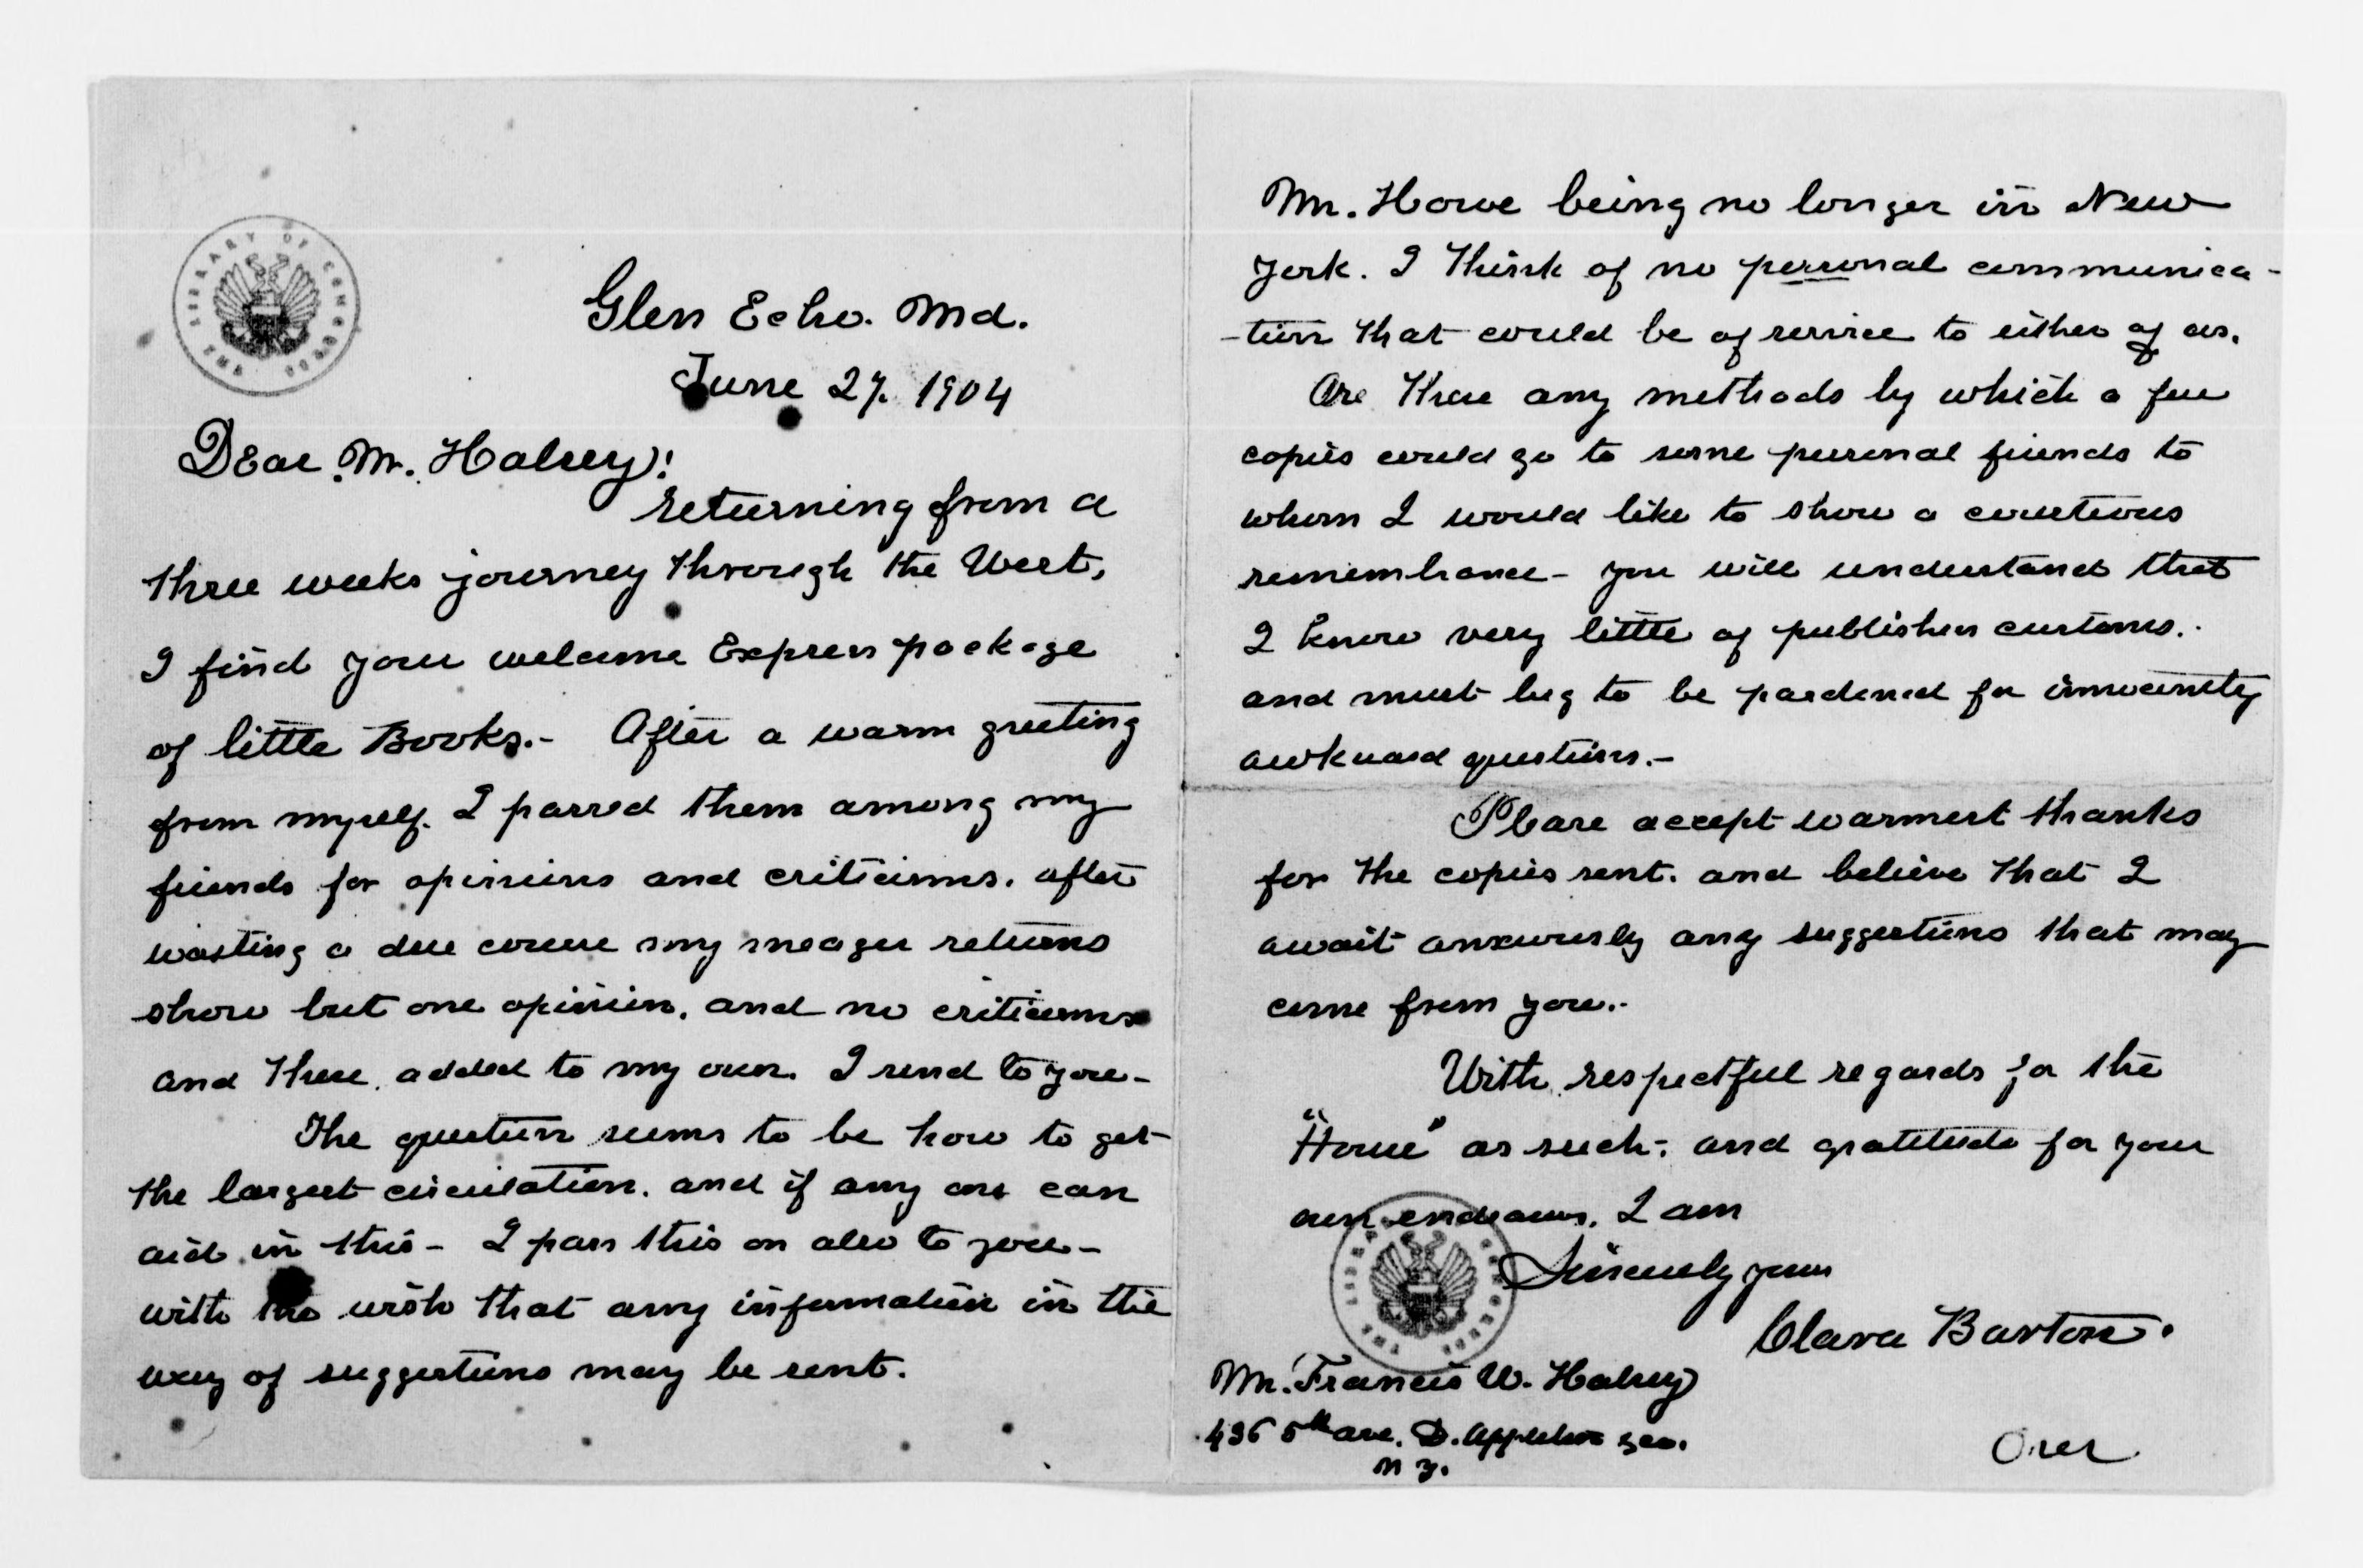 THE LIBRARY OF CONGRESS
Glen Echo. Md.
June 27. 1904
Dear Mr. Halsey!
returning from a
three weeks journey through the West,
I find your welcome Express package
of little Books.- After a warm greeting
from myself. I passed them among my
friends for opinions and criticisms. after
waiting a due course my meager returns
show but one opinion, and no criticisms
and these, added to my own. I send to you-
The question seems to be how to get
the largest circulation. and if any one can
aid in this- I pass this on also to you-
with the wish that any information in the
way of suggestions may be sent.
Mr. Howe being no longer in New
York. I think of no personal communica-
-tion that could be of service to either of us.
Are there any methods by which a few
copies could go to some personal friends to
whom I would like to show a courteous
remembrance- you will understand that
I know very little of publishers customs.
and must beg to be pardoned for innocently
awkward questions.-
Please accept warmest thanks
for the copies sent. and believe that I
await anxiously any suggestions that may
come from you.-
With respectful regards for the
"House" as such; and gratitude for your
own endeavors. I am
Sincerely yours
Clara Barton.
THE LIBRARY OF CONGRESS
Mr. Francis W. Halsey
436 5th ave. D. Appleton &co.
N Y.
Over